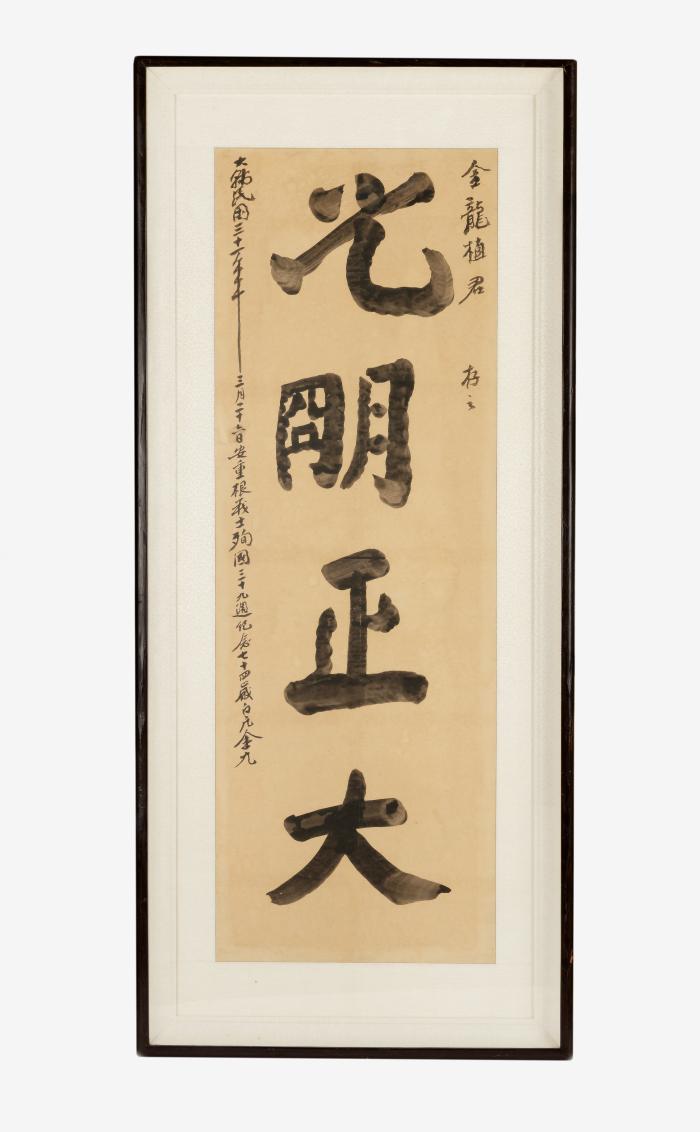 金龍植君 存之
光朙正大
大韓民国三十一年三月二十六日安重根義士殉國三十九週紀念七十四歲白凡金九